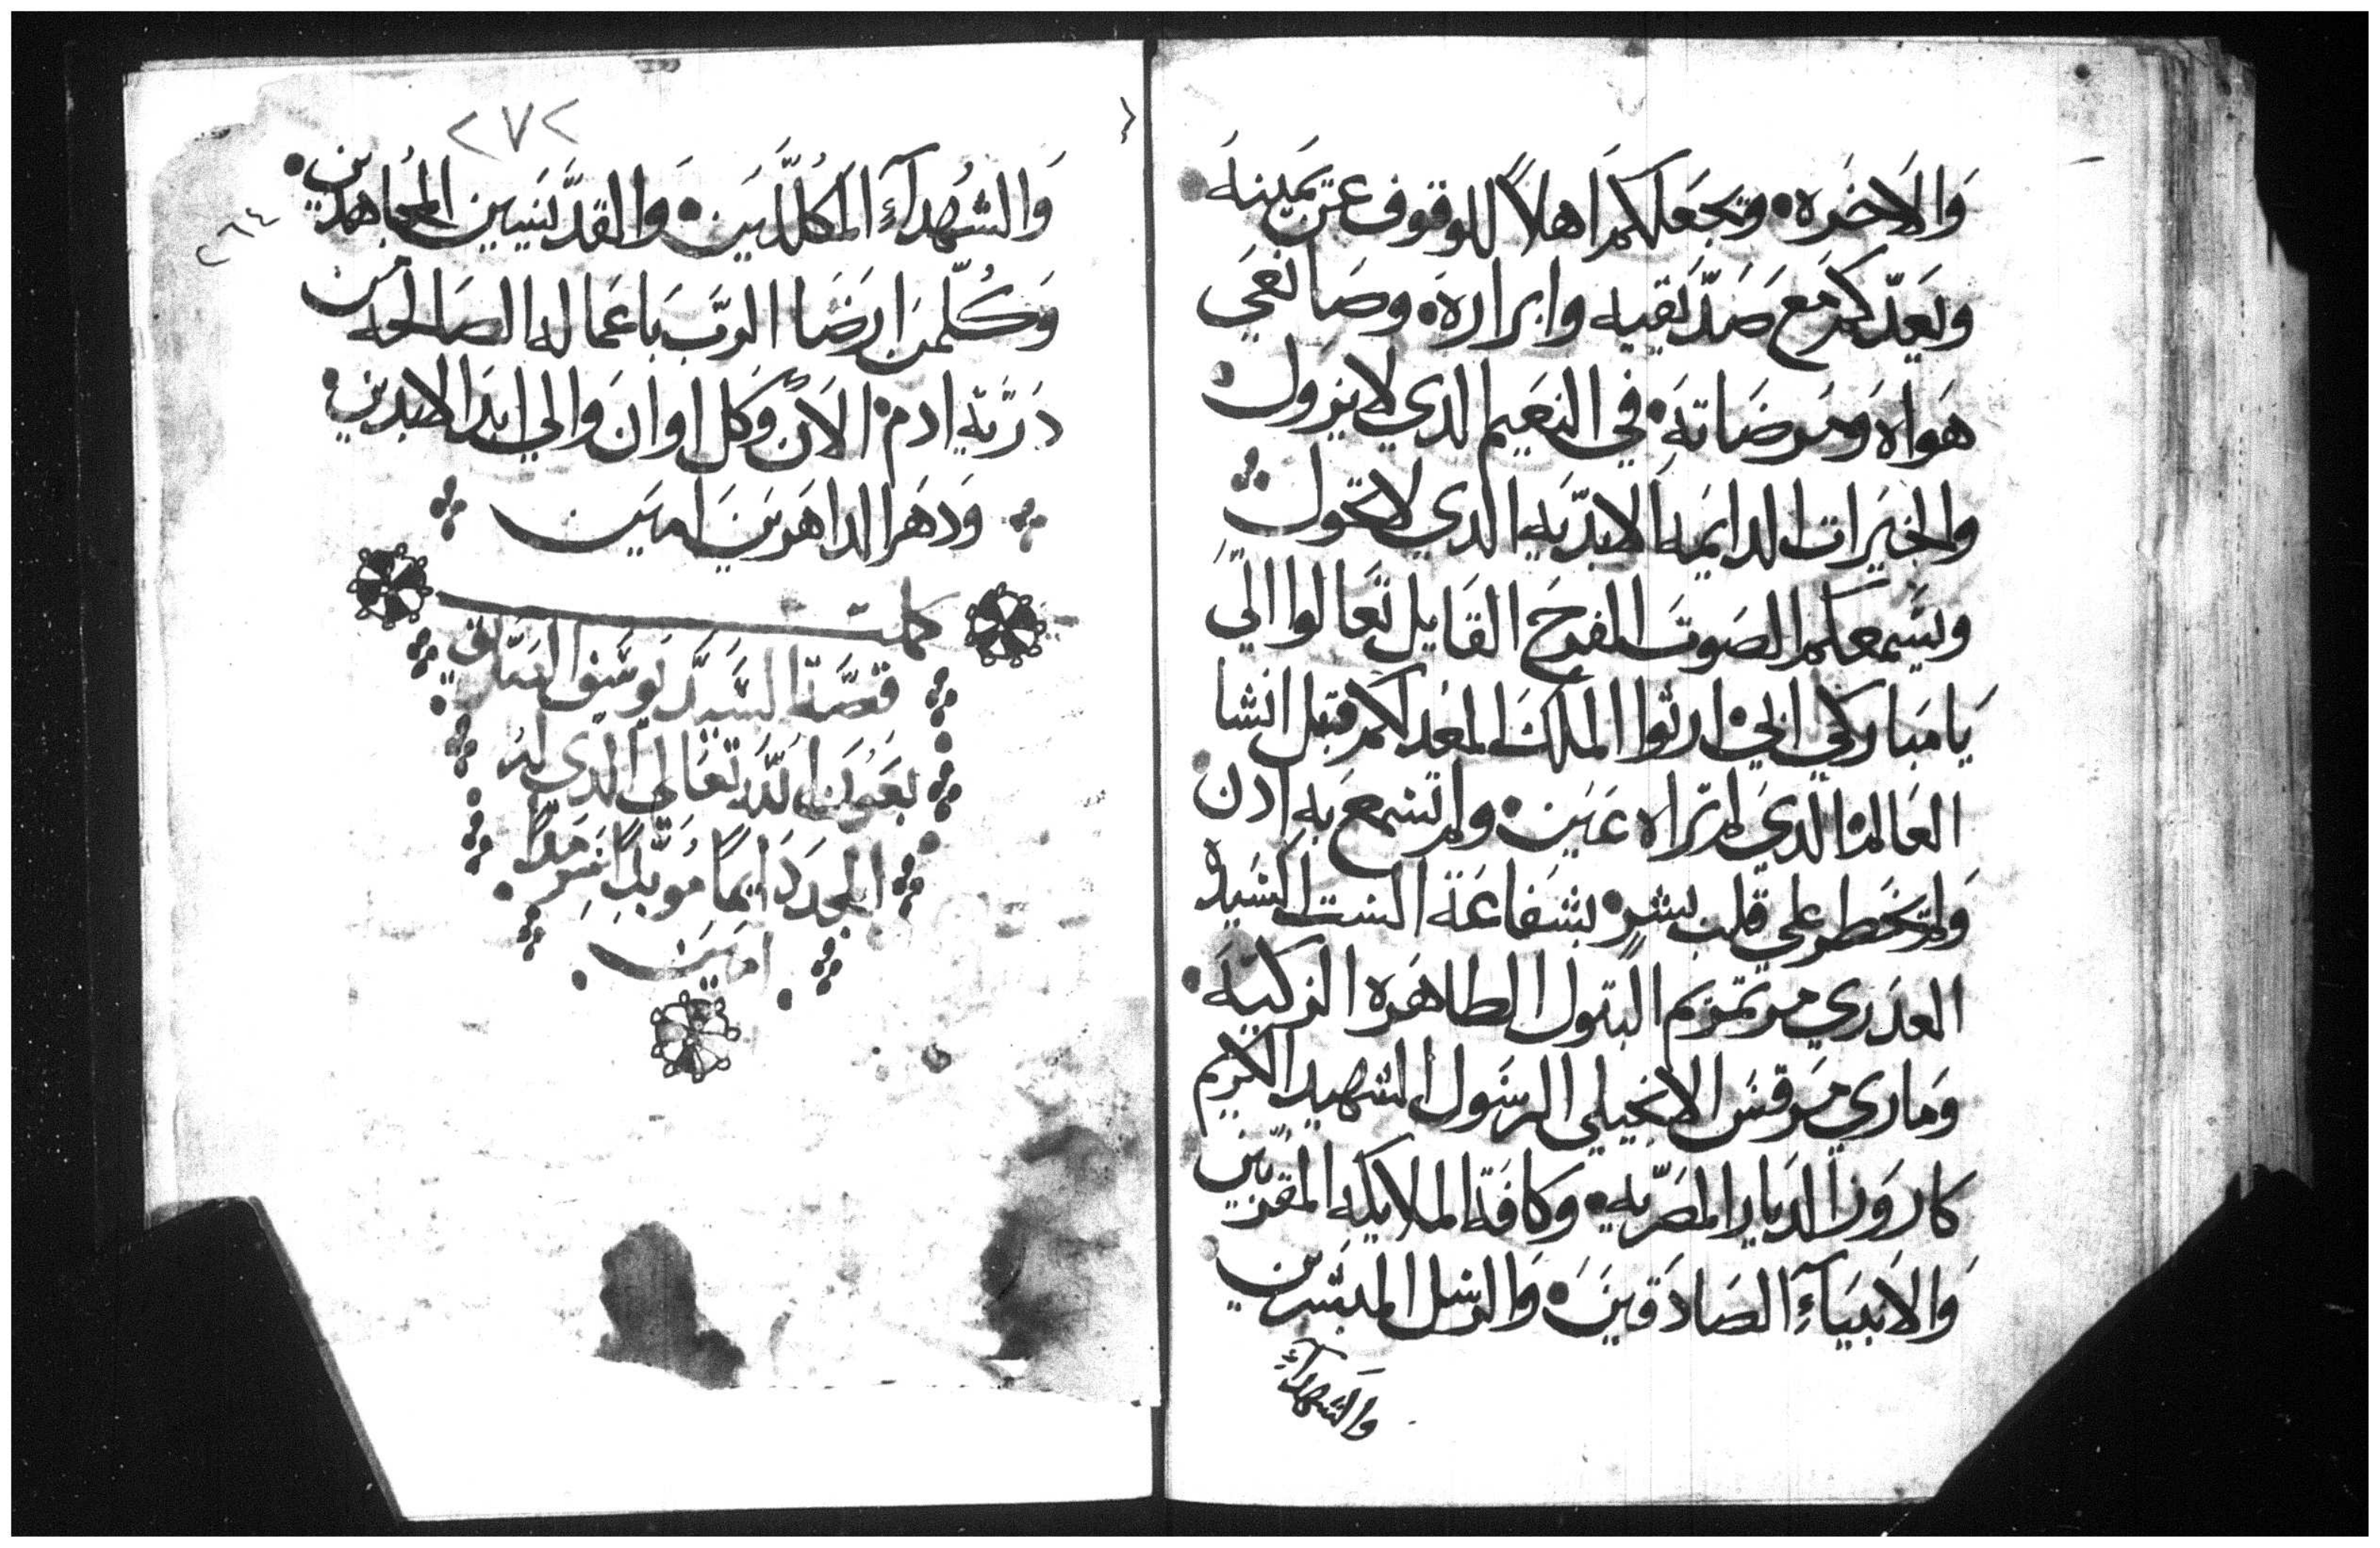 وَالاَخرَه• وتجعَلكم اهلاً للوقوف عَن يَمينهَ
ويَعدّكم مَع صَدّيقيه وابراره• وصَانعَي
هَواه وَمَرضَاتهَ• في النعَيم الدي لا يزول•
والخيَرات الدايَمه الابدّيه الدي لا تحَول
ويسَمعكم الصَوت المفرحَ القَايل تعَالوا اليَّ
يَا مَباركي ابي• ارثوا الملكَ المعَد لكم قبل انشا
العَالم• الدي لم تراه عَين• ولم تسَمع بَه ادن
وَلم تخَطر علي قلب بشر• بشفاعَة الست السَيده
العدَري مرتمَريم البتول الطاهَره الزكيَه•
وَماري مَرقسَ الانجيلي الرسَول الشهيد الكريم
كاروَز الديار المصَرّيه• وكافَة الملايكه المقرّبين
وَالاَنبيَآءِ الصَادقينَ• وَالرسَل المبشرين
والشهدآءِ
٢٧٢
وَالشهُدآءِ المكلَّلين• وَالقدّيسَين المجُاهدين•
وَكُلّمن ارضَا الرَبّ باعَماله الصَالحه من
درّية ادم• الاَن وَكل اوان وَالي ابدَ الابدين•
وَدهَر الداهَرينَ امَين
كملت
قصَّة السَيّد يوسَف النجار
بعَوَن اللَّه تعَالي الدي له
المجدَ دَايماً مُوبّداً سَرمَداً
امَين